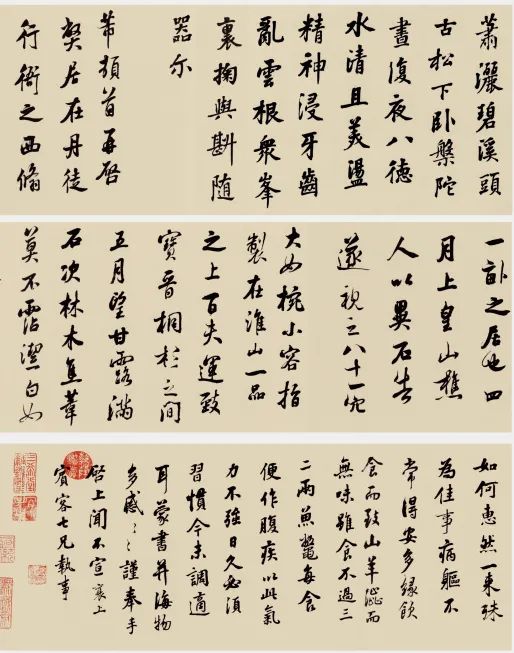 蕭灑碧溪頭
古松下卧槃陀
晝復夜八德
水清且美盪
精神浸牙齒
亂雲根衆峯
裏掬與斟随
器尔
芾頓首再啓
弊居在丹徒
行衙之西脩
一畝之居也四
月上皇山樵
人以異石告
遂視之八十一穴
大如椀小容指
製在淮山一品
之上百夫運致
寶晋桐杉之間
五月望甘露滿
石次林木焦葦
莫不霑潔白如
如何惠然一來殊
為佳事病軀不
常得安多緣飲
食而致山羊澁而
無味雖食不過三
二兩魚鼈每食
便作腹疾以此氣
力不強日久必須
習慣今未調適
耳蒙書并海物
多感〻謹奉手
啓上聞不宣襄上
賓客七兄執事